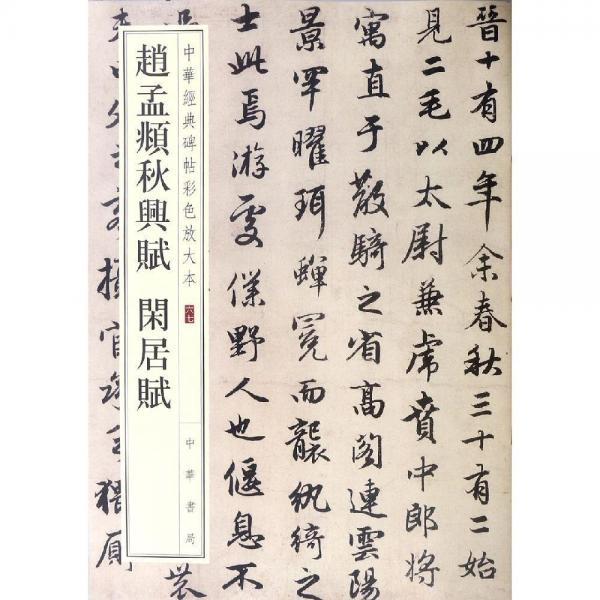 晉十有四年余春秋三十有二始
見二毛以太尉兼虎賁中郎將
寓直于散騎之省高閣連雲陽
景罕曜珥蟬冕而襲紈綺之
士此焉游處僕野人也偃息不
中華經典碑帖彩色放大本
六七
中華書局
趙孟頫秋興賦 閑居賦
猥厠